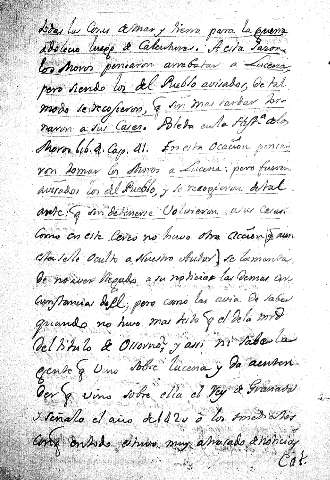 todas las Cosas de mar, y tierra para la guerra
adoleció luego de Calenturas. A esta sazon
los Moros pensaron arrebatar a Lucena,
pero siendo los del Pueblo avisados, de tal
modo se recogieron, q sin mas tardar tor
naron a sus Casas. Bleda en la Hist.ª de los
Moros lib. 4. Cap. 21. En esta Ocasion pensa
ron tomar los Moros a Lucena: pero fueron
avisados los del Pueblo, y se recogieron de tal
arte: q sin detenerse Volvieron a sus Casas
como en este Cerco no huvo otra Accion, q aun
esta se lo Oculto a Nuestro Author,
de no aver llegado a su noticia las demas cir
cunstancias del, pero como las avia de saber
quando no huvo mas sitio q el de la
del titulo de Ossorno, y assi ni sabe la
gente q Vino sobre Lucena, y da a enten
der q Vino sobre ella el Rey de Granada
y señala el año de 142 o los
conq en todo estuvo muy atrasado de noticias